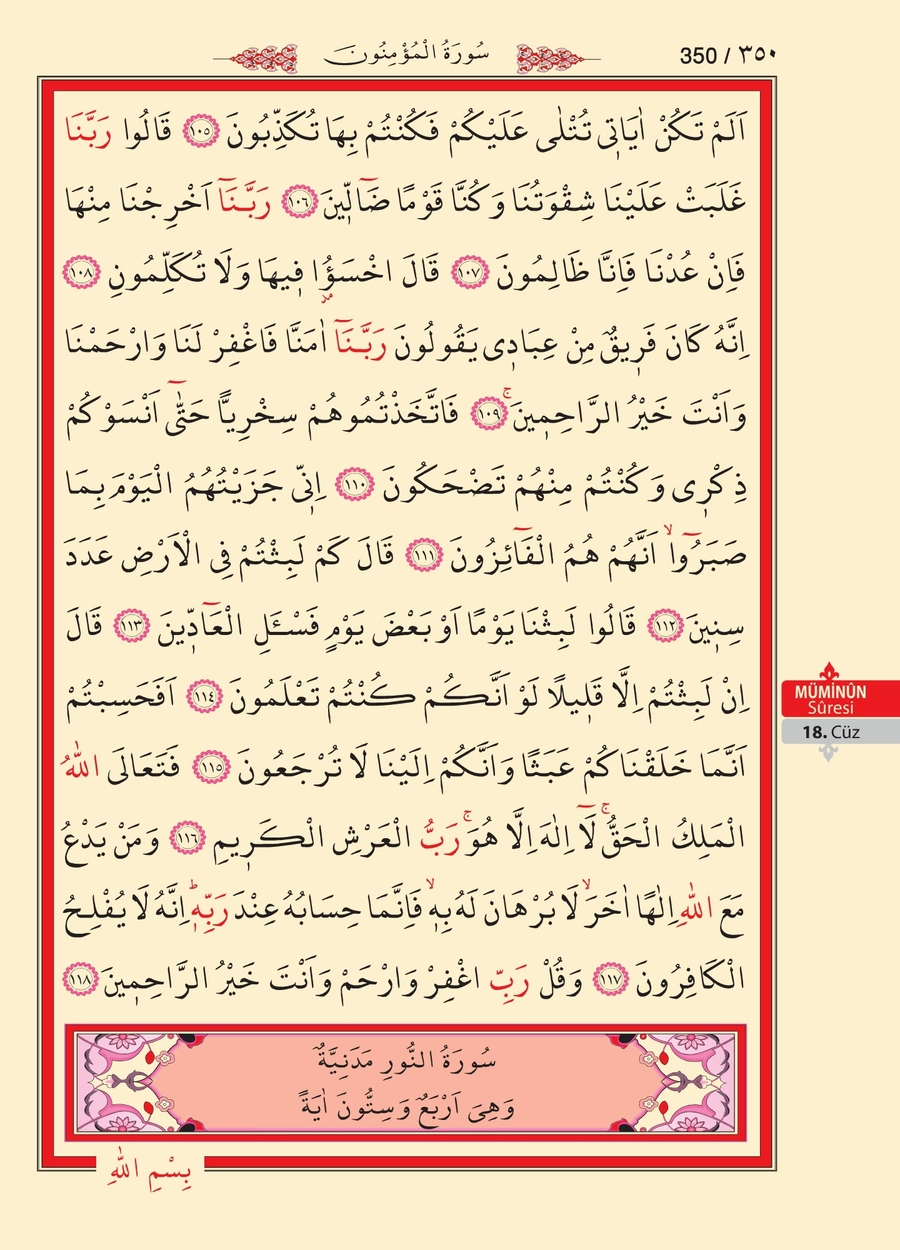 سُورَةُ الْمُؤْمِنُونَ
350 / ٣٥٠
اَلَمْ تَكُنْ اٰيَاتٖي تُتْلٰى عَلَيْكُمْ فَكُنْتُمْ بِهَا تُكَذِّبُونَ ١٠٥ قَالُوا رَبَّنَا
غَلَبَتْ عَلَيْنَا شِقْوَتُنَا وَكُنَّا قَوْمًا ضَٓالّٖينَ ١٠٦ رَبَّنَٓا اَخْرِجْنَا مِنْهَا
فَاِنْ عُدْنَا فَاِنَّا ظَالِمُونَ ١٠٧ قَالَ اخْسَؤُ۫ا فٖيهَا وَلَا تُكَلِّمُونِ ١٠٨
اِنَّهُ كَانَ فَرٖيقٌ مِنْ عِبَادٖي يَقُولُونَ رَبَّنَٓا اٰمَنَّا فَاغْفِرْ لَنَا وَارْحَمْنَا
وَاَنْتَ خَيْرُ الرَّاحِمٖينَۚ ١٠٩ فَاتَّخَذْتُمُوهُمْ سِخْرِيًّا حَتّٰٓى اَنْسَوْكُمْ
ذِكْرٖي وَكُنْتُمْ مِنْهُمْ تَضْحَكُونَ ١١٠ اِنّٖي جَزَيْتُهُمُ الْيَوْمَ بِمَا
صَبَرُٓواۙ اَنَّهُمْ هُمُ الْفَٓائِزُونَ ١١١ قَالَ كَمْ لَبِثْتُمْ فِي الْاَرْضِ عَدَدَ
سِنٖينَ ١١٢ قَالُوا لَبِثْنَا يَوْمًا اَوْ بَعْضَ يَوْمٍ فَسْـَٔلِ الْعَٓادّٖينَ ١١٣ قَالَ
اِنْ لَبِثْتُمْ اِلَّا قَلٖيلًا لَوْ اَنَّكُمْ كُنْتُمْ تَعْلَمُونَ ١١٤ اَفَحَسِبْتُمْ
اَنَّمَا خَلَقْنَاكُمْ عَبَثًا وَاَنَّكُمْ اِلَيْنَا لَا تُرْجَعُونَ ١١٥ فَتَعَالَى اللّٰهُ
الْمَلِكُ الْحَقُّۚ لَٓا اِلٰهَ اِلَّا هُوَۚ رَبُّ الْعَرْشِ الْكَرٖيمِ ١١٦ وَمَنْ يَدْعُ
مَعَ اللّٰهِ اِلٰهًا اٰخَرَۙ لَا بُرْهَانَ لَهُ بِهٖۙ فَاِنَّمَا حِسَابُهُ عِنْدَ رَبِّهٖؕ اِنَّهُ لَا يُفْلِحُ
الْكَافِرُونَ ١١٧ وَقُلْ رَبِّ اغْفِرْ وَارْحَمْ وَاَنْتَ خَيْرُ الرَّاحِمٖينَ ١١٨
MÜMİNÛN
Sûresi
18. Cüz
سُورَةُ النُّورِ مَدَنِيَّةٌ
وَهِيَ اَرْبَعٌ وَسِتُّونَ اٰيَةً
بِسْمِ اللّٰهِ